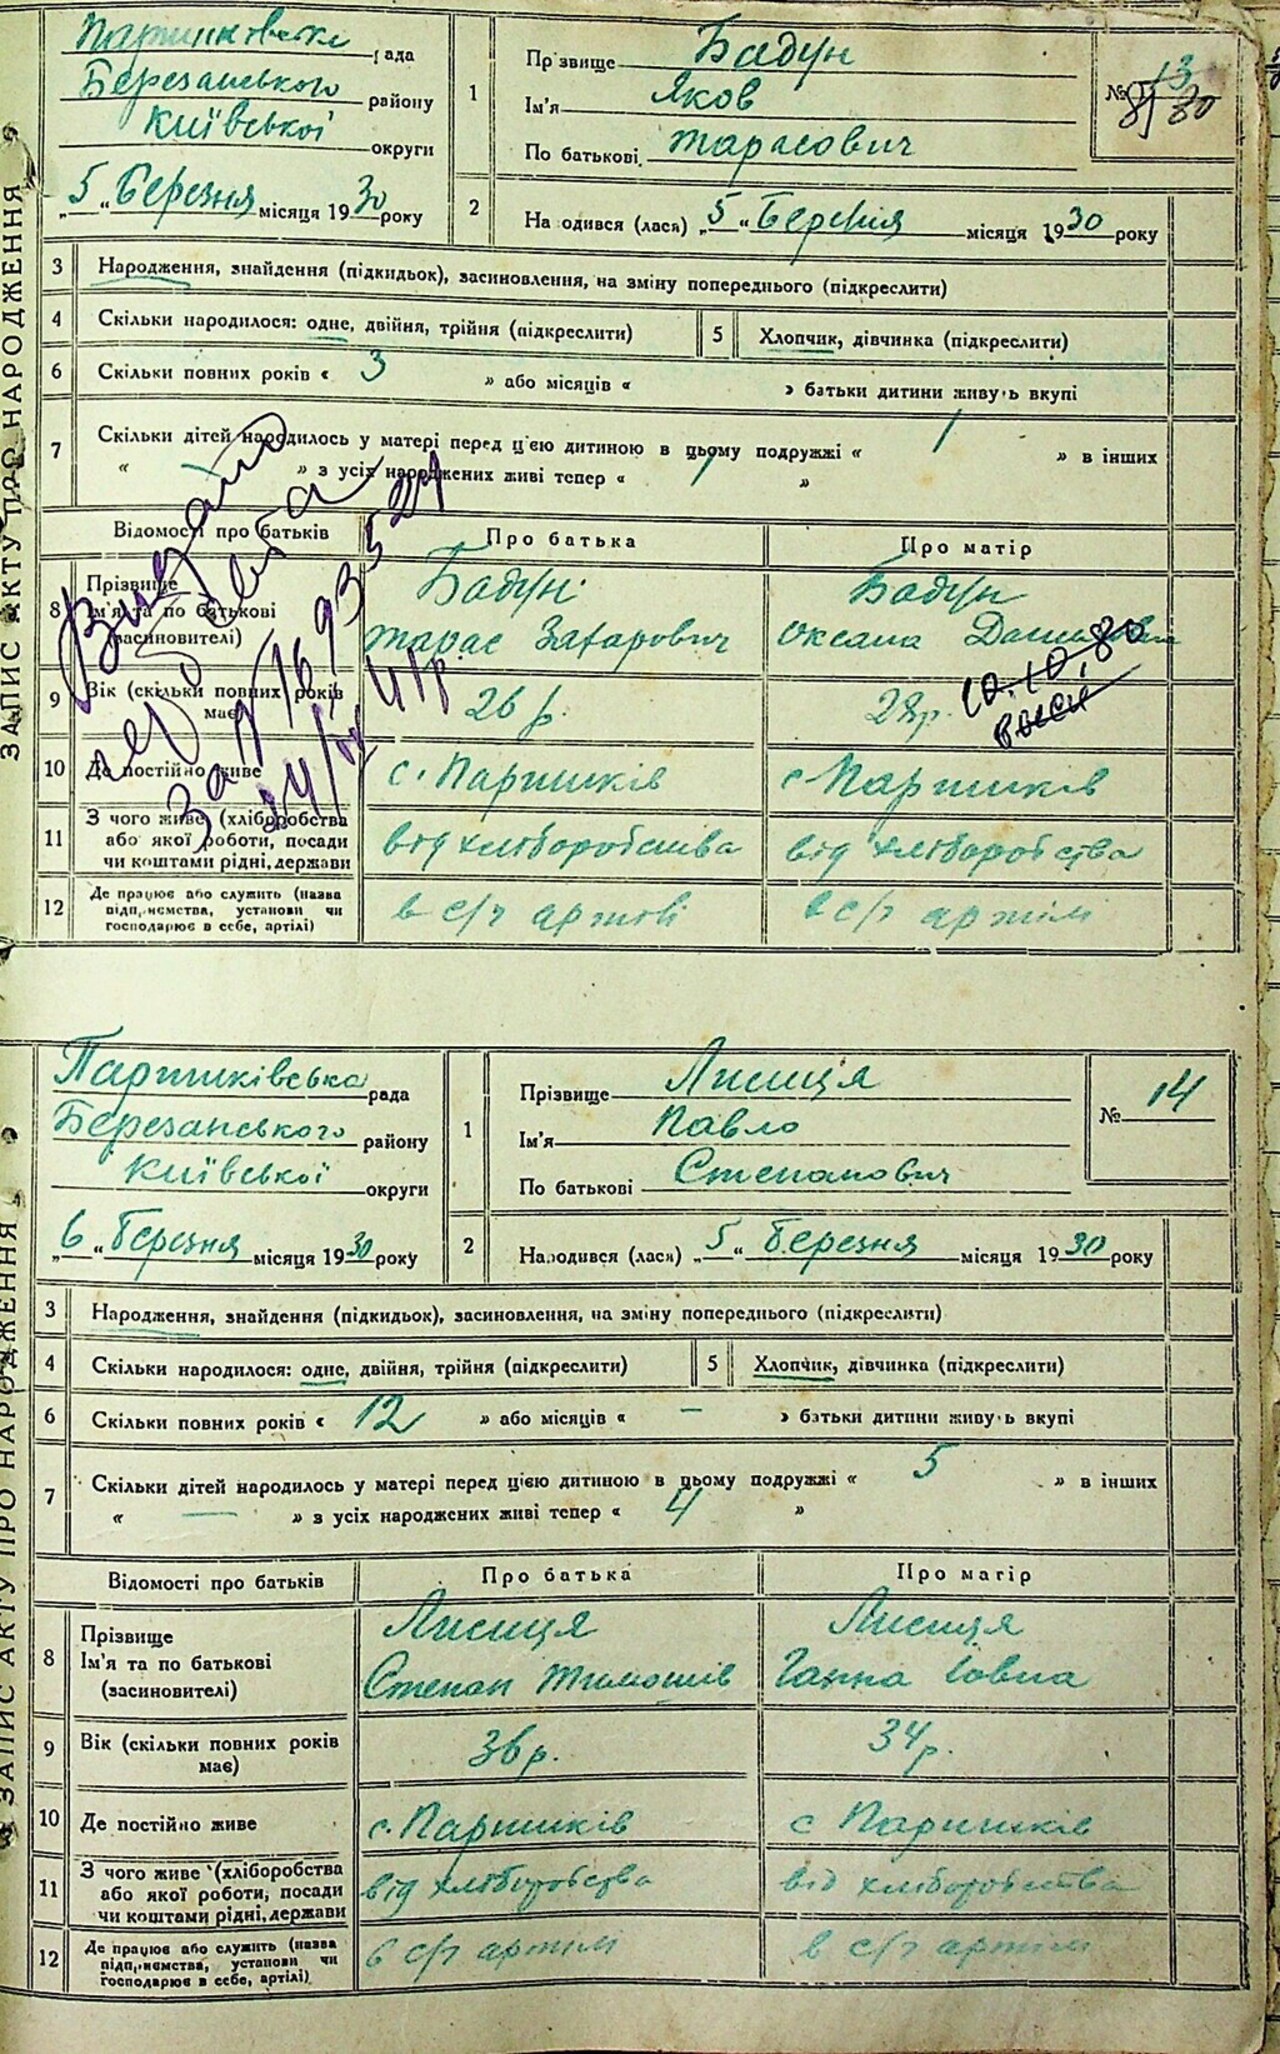 ЗАПИС АКТУ ПРО НАРОДЖЕННЯ
рада
Березанського району
Київської округи
„5“ Березня місяця 1930 року
1
Прізвище Бадун
Ім'я Яков
По батькові Тарасович
№ 13
2
Народився (лася) „5“ Березня місяця 1930 року
3 Народження, знайдення (підкидьок), засиновлення, на зміну попереднього (підкреслити)
4 Скільки народилося: одне, двійня, трійня (підкреслити)
5 Хлопчик, дівчинка (підкреслити)
6 Скільки повних років « 3 » або місяців « » батьки дитини живуть вкупі
7 Скільки дітей народилось у матері перед цією дитиною в цьому подружжі « 1 » в інших
« — » з усіх народжених живі тепер « 1 »
Відомості про батьків
Про батька
Про матір
8 Прізвище
Ім'я та по батькові
(засиновителі)
Бадун
Тарас Захарович
Бадун
Оксана
10.10.80
9 Вік (скільки повних років
має)
26 р.
28р.
10 Де постійно живе
с. Паришків
с Паришків
11 З чого живе (хліборобства
або якої роботи, посади
чи коштами рідні, держави
від хліборобства
від хліборобства
12 Де працює або служить (назва
підприємства, установи чи
господарює в себе, артілі)
в с/г артілі
в с/г артілі
Видано
ЗАПИС АКТУ ПРО НАРОДЖЕННЯ
Паришківська рада
Березанського району
Київської округи
„6“ березня місяця 1930 року
1
Прізвище Лисиця
Ім'я Павло
По батькові Степанович
№ 14
2
Народився (лася) „5“ березня місяця 1930 року
3 Народження, знайдення (підкидьок), засиновлення, на зміну попереднього (підкреслити)
4 Скільки народилося: одне, двійня, трійня (підкреслити)
5 Хлопчик, дівчинка (підкреслити)
6 Скільки повних років « 12 » або місяців « — » батьки дитини живуть вкупі
7 Скільки дітей народилось у матері перед цією дитиною в цьому подружжі « 5 » в інших
« — » з усіх народжених живі тепер « 4 »
Відомості про батьків
Про батька
Про матір
8 Прізвище
Ім'я та по батькові
(засиновителі)
Лисиця
Степан Тимошів
Лисиця
Ганна Іовна
9 Вік (скільки повних років
має)
36р.
34р.
10 Де постійно живе
с. Паришків
с Паришків
11 З чого живе (хліборобства
або якої роботи, посади
чи коштами рідні, держави
від хліборобства
від хліборобства
12 Де працює або служить (назва
підприємства, установи чи
господарює в себе, артілі)
в с/г артілі
в с/г артілі